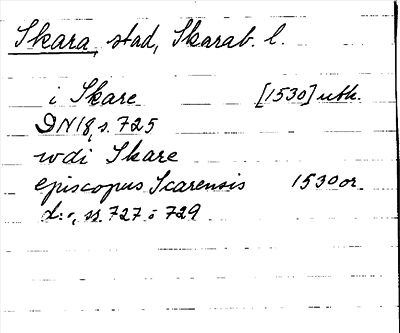 Skara, stad, Skarab. l.
i Skare [1530] utk.
DN 18, s. 725
wdi Skare
episcopus Scarensis 1530 or.
d:o, ss. 727 o 729